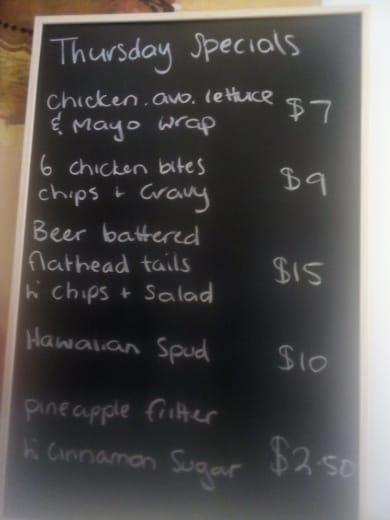 Thursday Specials
Chicken. avo. lettuce
& Mayo wrap $7
6 chicken bites
chips + Gravy $9
Beer battered
flathead tails
hi chips + Salad $15
Hawaiian Spud $10
pineapple fritter
hi cinnamon Sugar $2.50